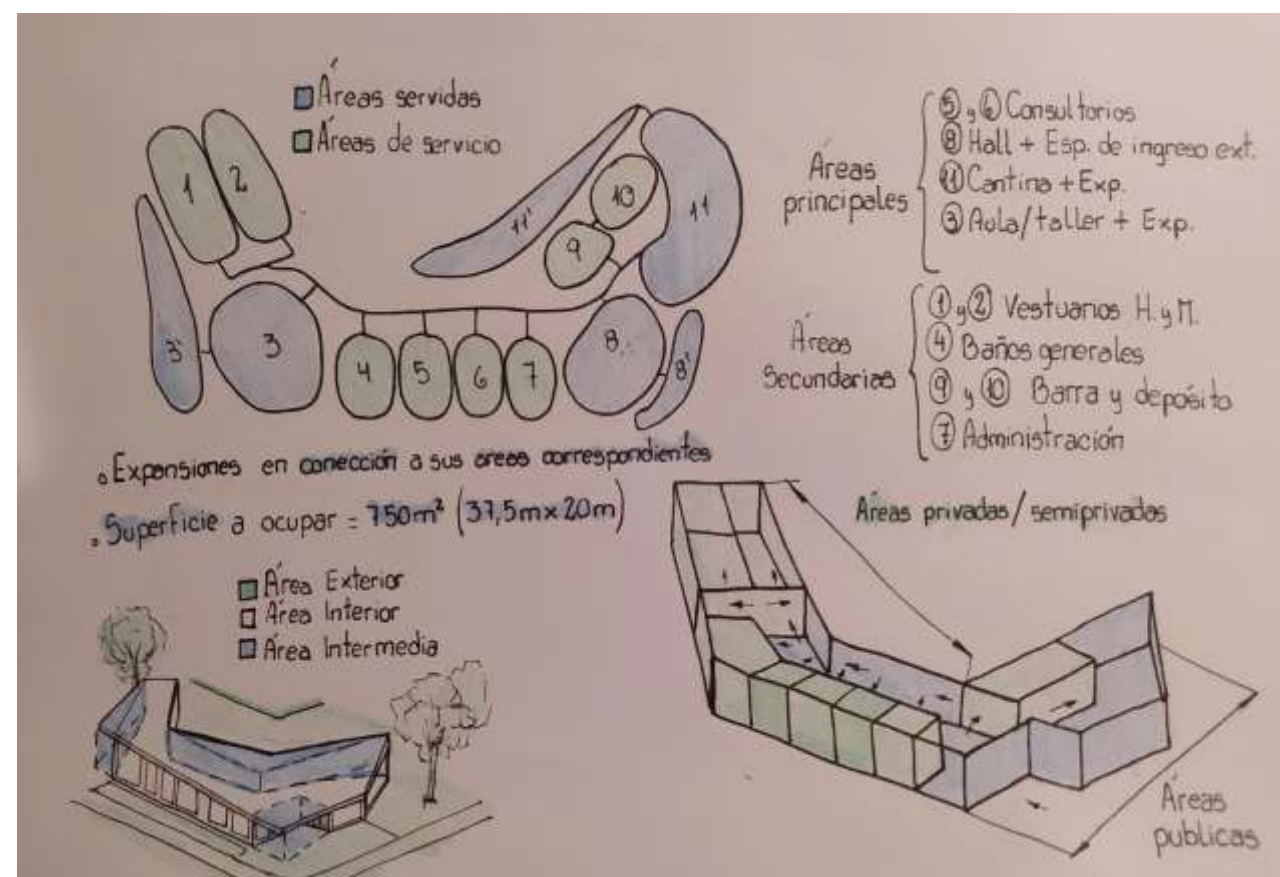 Áreas servidas
Áreas de servicio
1
2
3'
3
4
5
6
7
8
8'
9
10
11'
11
Áreas principales
⑤ y ⑥ Consultorios
⑧ Hall + Esp. de ingreso ext.
⑪ Cantina + Exp.
③ Aula/taller + Exp.
Áreas Secundarias
① y ② Vestuarios H. y M.
④ Baños generales
⑨ y ⑩ Barra y depósito
⑦ Administración
Expansiones en conección a sus areas correspondientes
Superficie a ocupar = 750m² (37,5m x 20m)
Área Exterior
Área Interior
Área Intermedia
Áreas privadas/semiprivadas
Áreas publicas